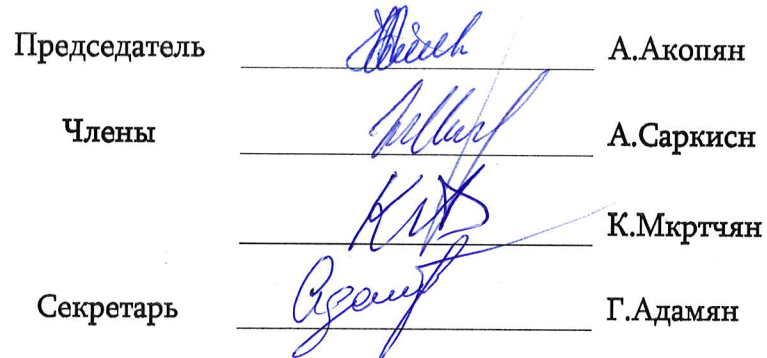 Председатель А.Акопян
Члены А.Саркисн
К.Мкртчян
Секретарь Г.Адамян